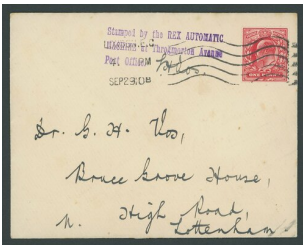 Stamped by the REX AUTOMATIC
MACHINE at Threadneedle Avenue
Post Office
PM
SEP 29 08
Dr. G. H. Vos,
Bruce Grove House,
N. High Road,
Tottenham